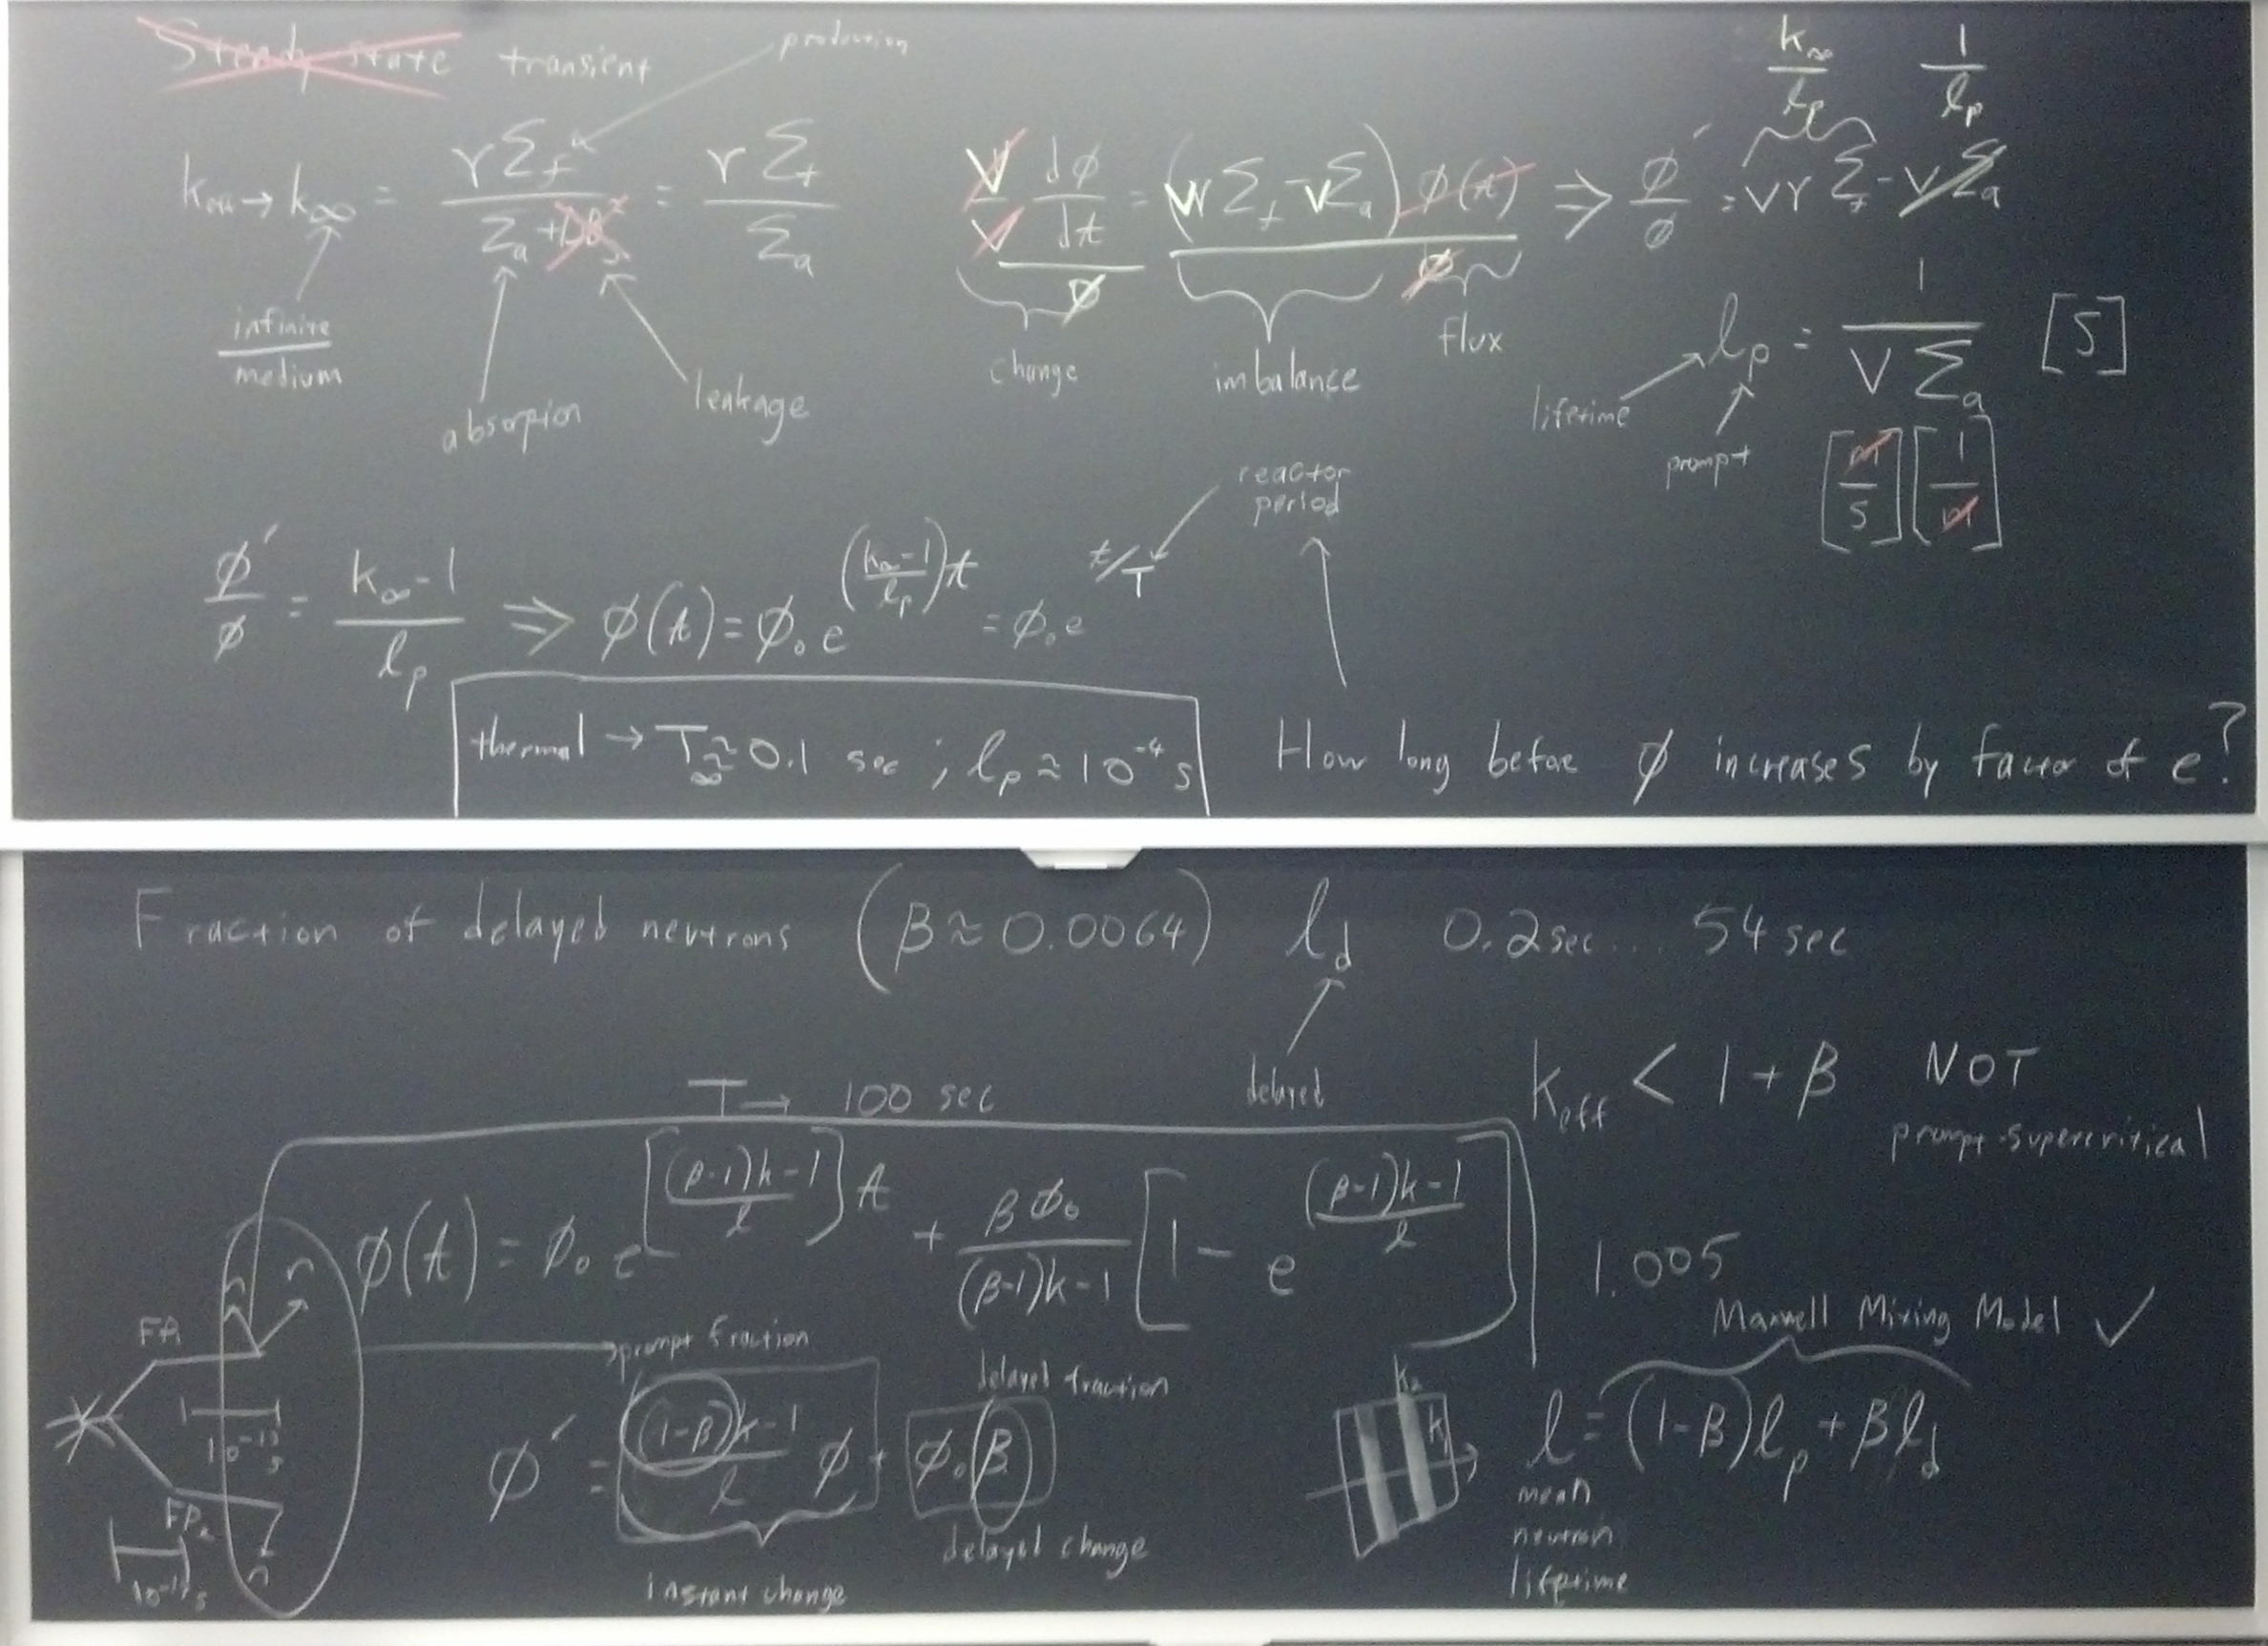 Steady state transient production
k_eff → k_∞ = νΣ_f / (Σ_a + DB_g²) = νΣ_f / Σ_a
infinite medium
absorpion
leakage
(V/V) dϕ/dt / ϕ = (vνΣ_f - vΣ_a) ϕ(t) / ϕ ⇒ ϕ′/ϕ = vνΣ_f - vΣ_a
k_∞/l_p 1/l_p
change
imbalance
flux
l_p = 1 / (vΣ_a) [s]
lifetime
prompt
[m/s] [1/m]
ϕ′/ϕ = (k_∞ - 1)/l_p ⇒ ϕ(t) = ϕ₀ e^((k_∞-1)/l_p)t = ϕ₀ e^(t/T)
reactor period
thermal → T_∞ ≈ 0.1 sec ; l_p ≈ 10⁻⁴ s
How long before ϕ increases by factor of e?
Fraction of delayed neutrons (β ≈ 0.0064) l_d 0.2 sec... 54 sec
delayed
T → 100 sec
k_eff < 1 + β NOT
prompt-supercritical
ϕ(t) = ϕ₀ e^[((β-1)k-1)/l]t + βϕ₀/((β-1)k-1) [1 - e^(((β-1)k-1)/l)]
1.005
Maxwell Mixing Model ✓
n n
FP₁
prompt fraction
delayed fraction
ϕ′ = ((1-β)k-1)/l ϕ + ϕ₀β
instant change
delayed change
k₂
k₁
l = (1-β)l_p + βl_d
mean
neutron
lifetime
FP₂
n